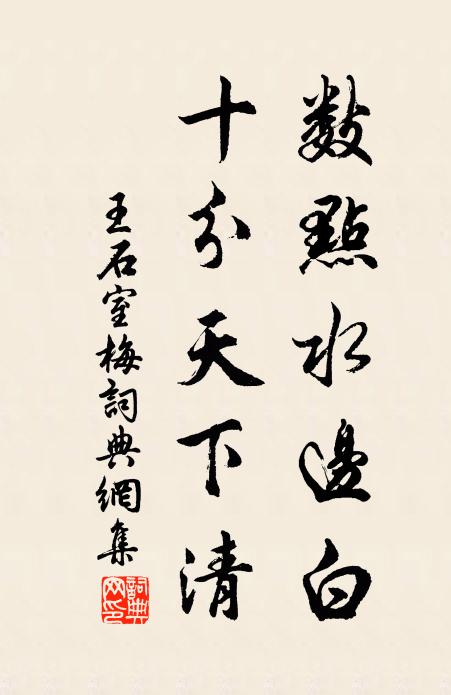 數點水邊白
十分天下清
王石室梅詞典網集
詞典
网印